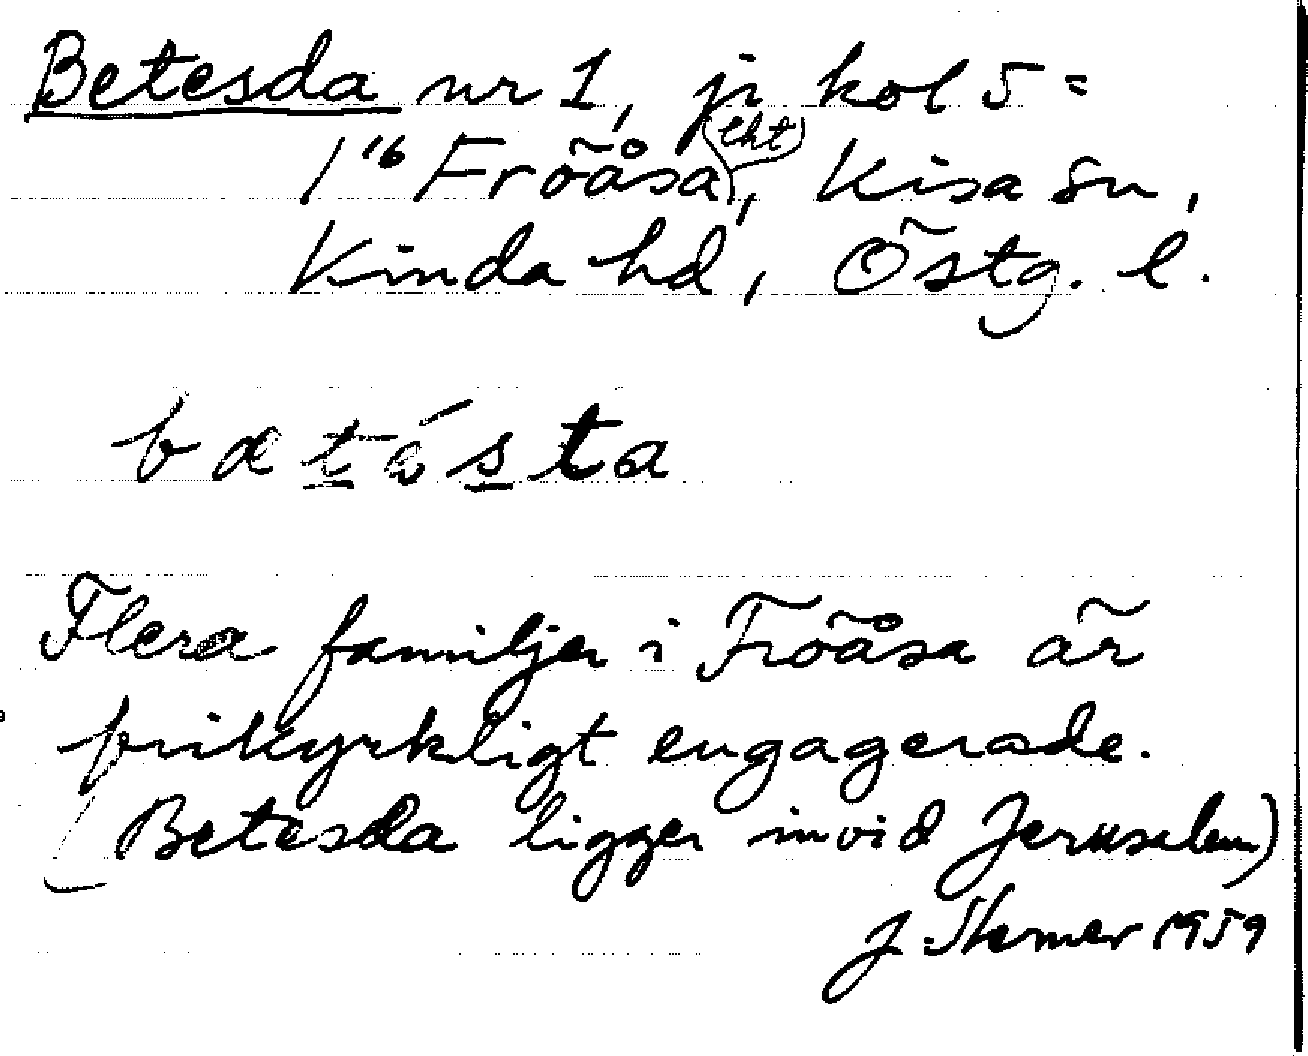 Betesda nr 1, ji kol 5 =
1¹⁶ Fröåsa (lht), Kisa sn,
Kinda hd, Östg. l.
bætésta
Flera familjer i Fröåsa är
frikyrkligt engagerade.
(Betesda ligger invid Jerusalem)
J. 1959